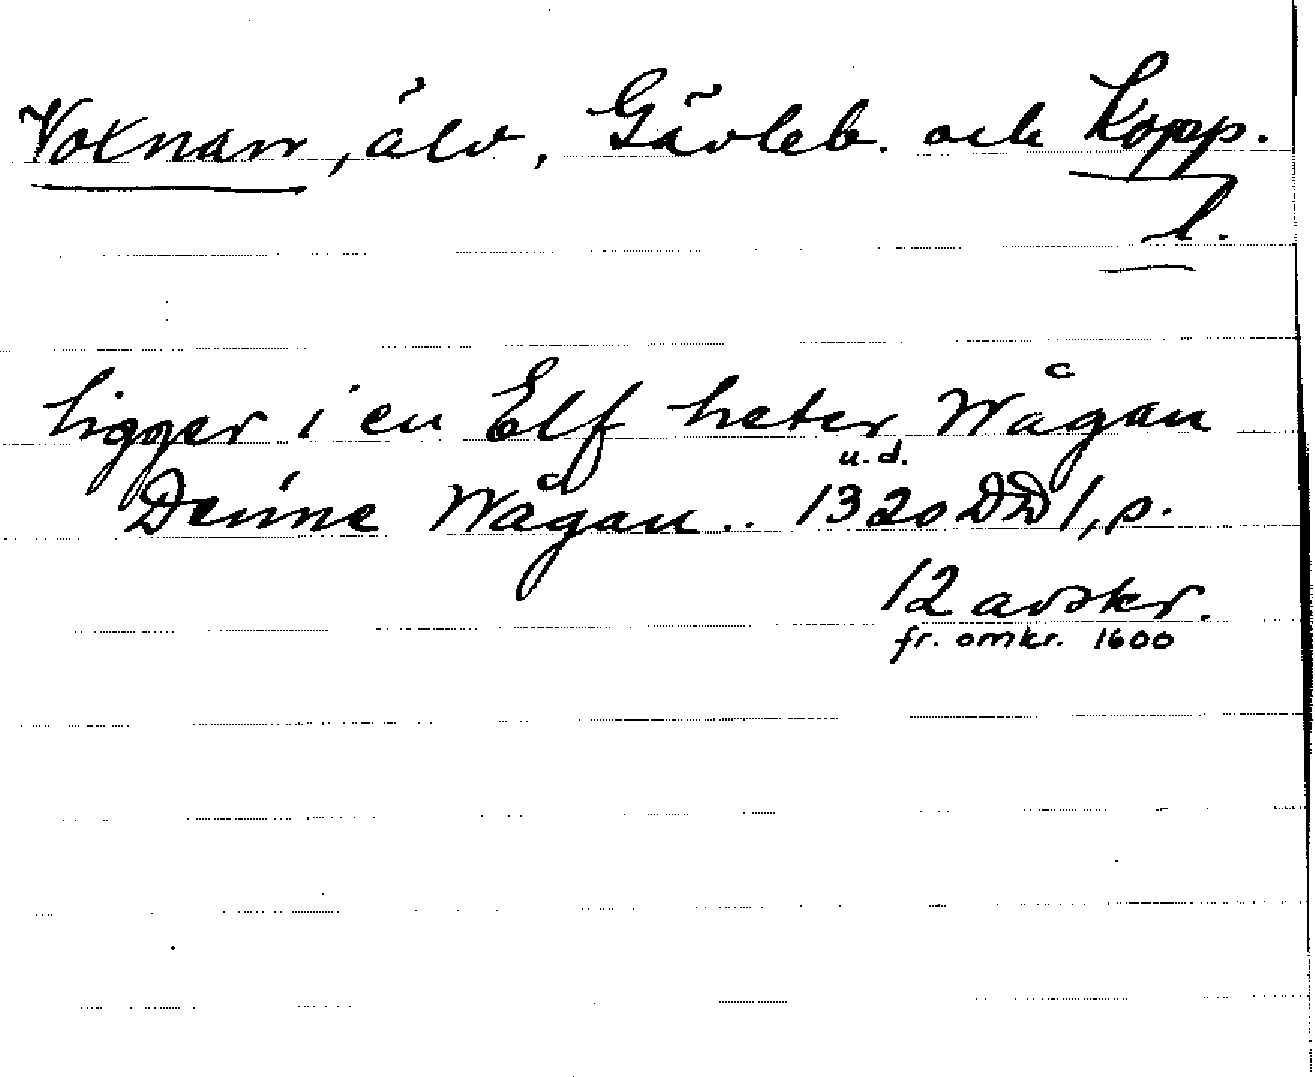 Voxnan, älv, Gävleb. och Kopp.
l.
ligger i en Elf heter Wågan
u.d.
Denne Wågan .. 1320 DD 1, s.
12 avskr.
fr. omkr. 1600